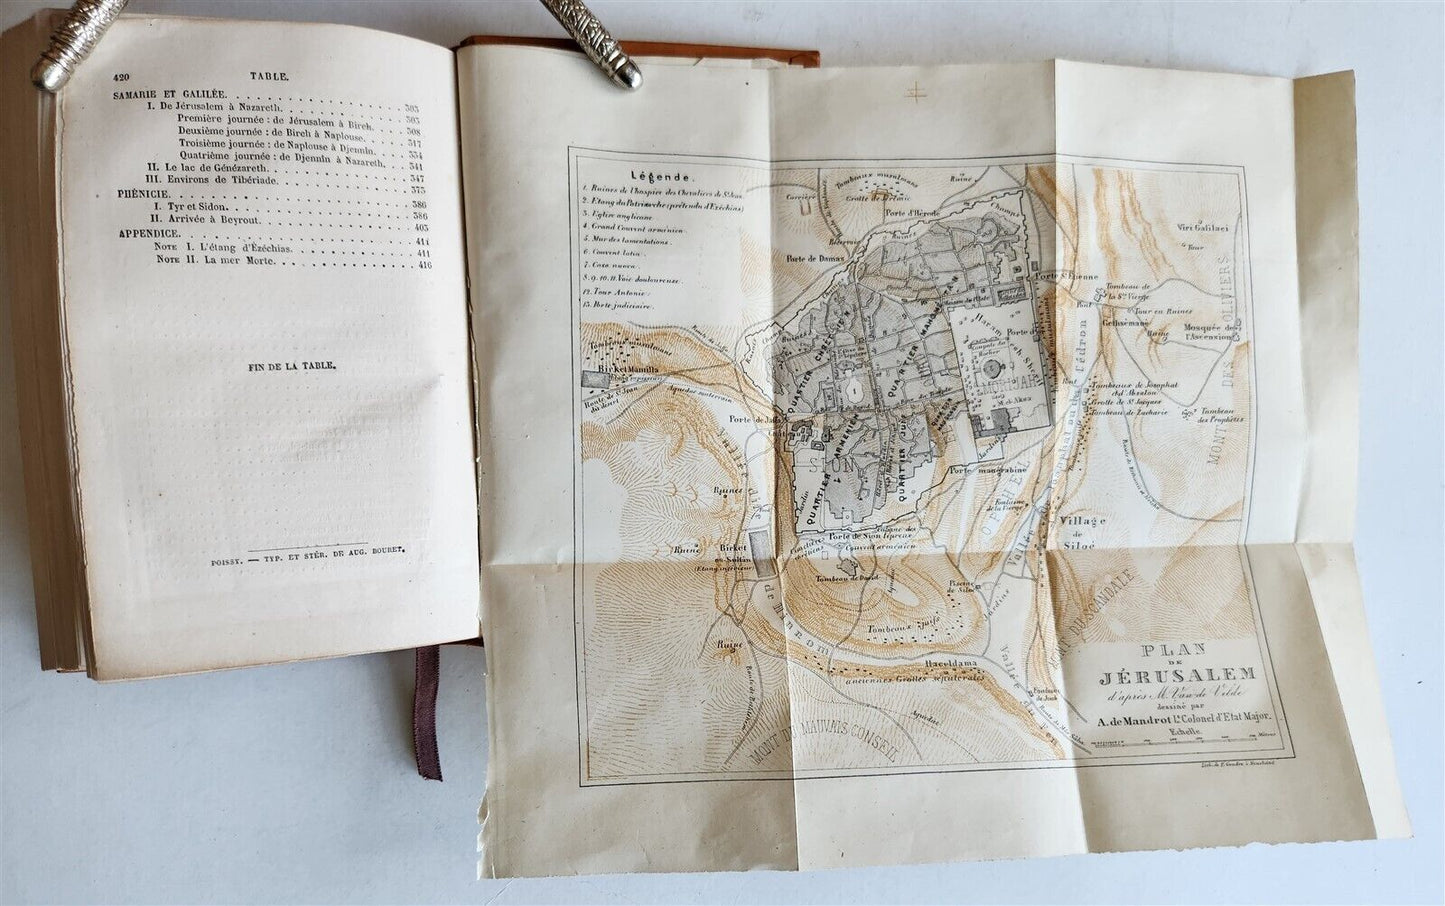 420 TABLE.
SAMARIE ET GALILÉE. 303
I. De Jérusalem à Nazareth. 303
Première journée : de Jérusalem à Bireh. 303
Deuxième journée : de Bireh à Naplouse. 308
Troisième journée : de Naplouse à Djennîn. 317
Quatrième journée : de Djennîn à Nazareth. 334
II. Le lac de Génézareth. 341
III. Environs de Tibériade. 347
PHÉNICIE. 375
I. Tyr et Sidon. 386
II. Arrivée à Beyrout. 386
403
APPENDICE. 411
NOTE I. L'étang d'Ézéchias. 411
NOTE II. La mer Morte. 416
FIN DE LA TABLE.
POISSY. — TYP. ET STÉR. DE AUG. BOURET.
Légende.
1. Ruines de l'hospice des Chevaliers de St Jean.
2. Etang du Patriarche (prétendu d'Ezéchias)
3. Eglise anglicane
4. Grand Couvent arménien
5. Mur des lamentations.
6. Couvent latin.
7. Casa nuova.
8. 9. 10. 11. Voie douloureuse.
12. Tour Antonia.
13. Porte judiciaire.
Tombeaux musulmans
Grotte de Jérémie
Carrière
Ruine
Porte d'Hérode
Champs
Réservoir
Porte de Damas
Porte St Etienne
Tombeau de
la Ste Vierge
Viri Galilaei
Tour
Pont
Gethsémané
Tour en Ruines
Ruine
Mosquée de
l'Ascension
MONT DES OLIVIERS
QUARTIER CHRÉTIEN
QUARTIER MAHOMÉTAN
Haram esh Sherif
MORIJAH
Tombeaux musulmans
Birket Mamilla
Etang supérieur
Route de St Jean
du désert
Aqueduc souterrain
Porte de Jaffa
SION
QUARTIER ARMÉNIEN
QUARTIER JUIF
Jardin
Porte maugrabine
Pont
Tombeaux de Josaphat
d'Absalon
Grotte de St Jacques
Tombeau de Zacharie
Tombeau
des Prophètes
Vallée de Hinnom
Ruines
Ruine
Birket
es-Sultân
(Etang inférieur)
Jardin
Porte de Sion
Couvent arménien
Tombeau de David
OPHEL
Fontaine
de la Vierge
Village
de
Siloé
Piscine
de Siloé
Jardins
Tombeaux juifs
Aqueduc
Ruine
Haceldama
anciennes Grottes sépulcrales
MONT DU SCANDALE
MONT DU MAUVAIS CONSEIL
Aqueduc
PLAN
DE
JÉRUSALEM
d'après M. Van de Velde
dessiné par
A. de Mandrot Lt Colonel d'Etat Major.
Echelle.
Mètres